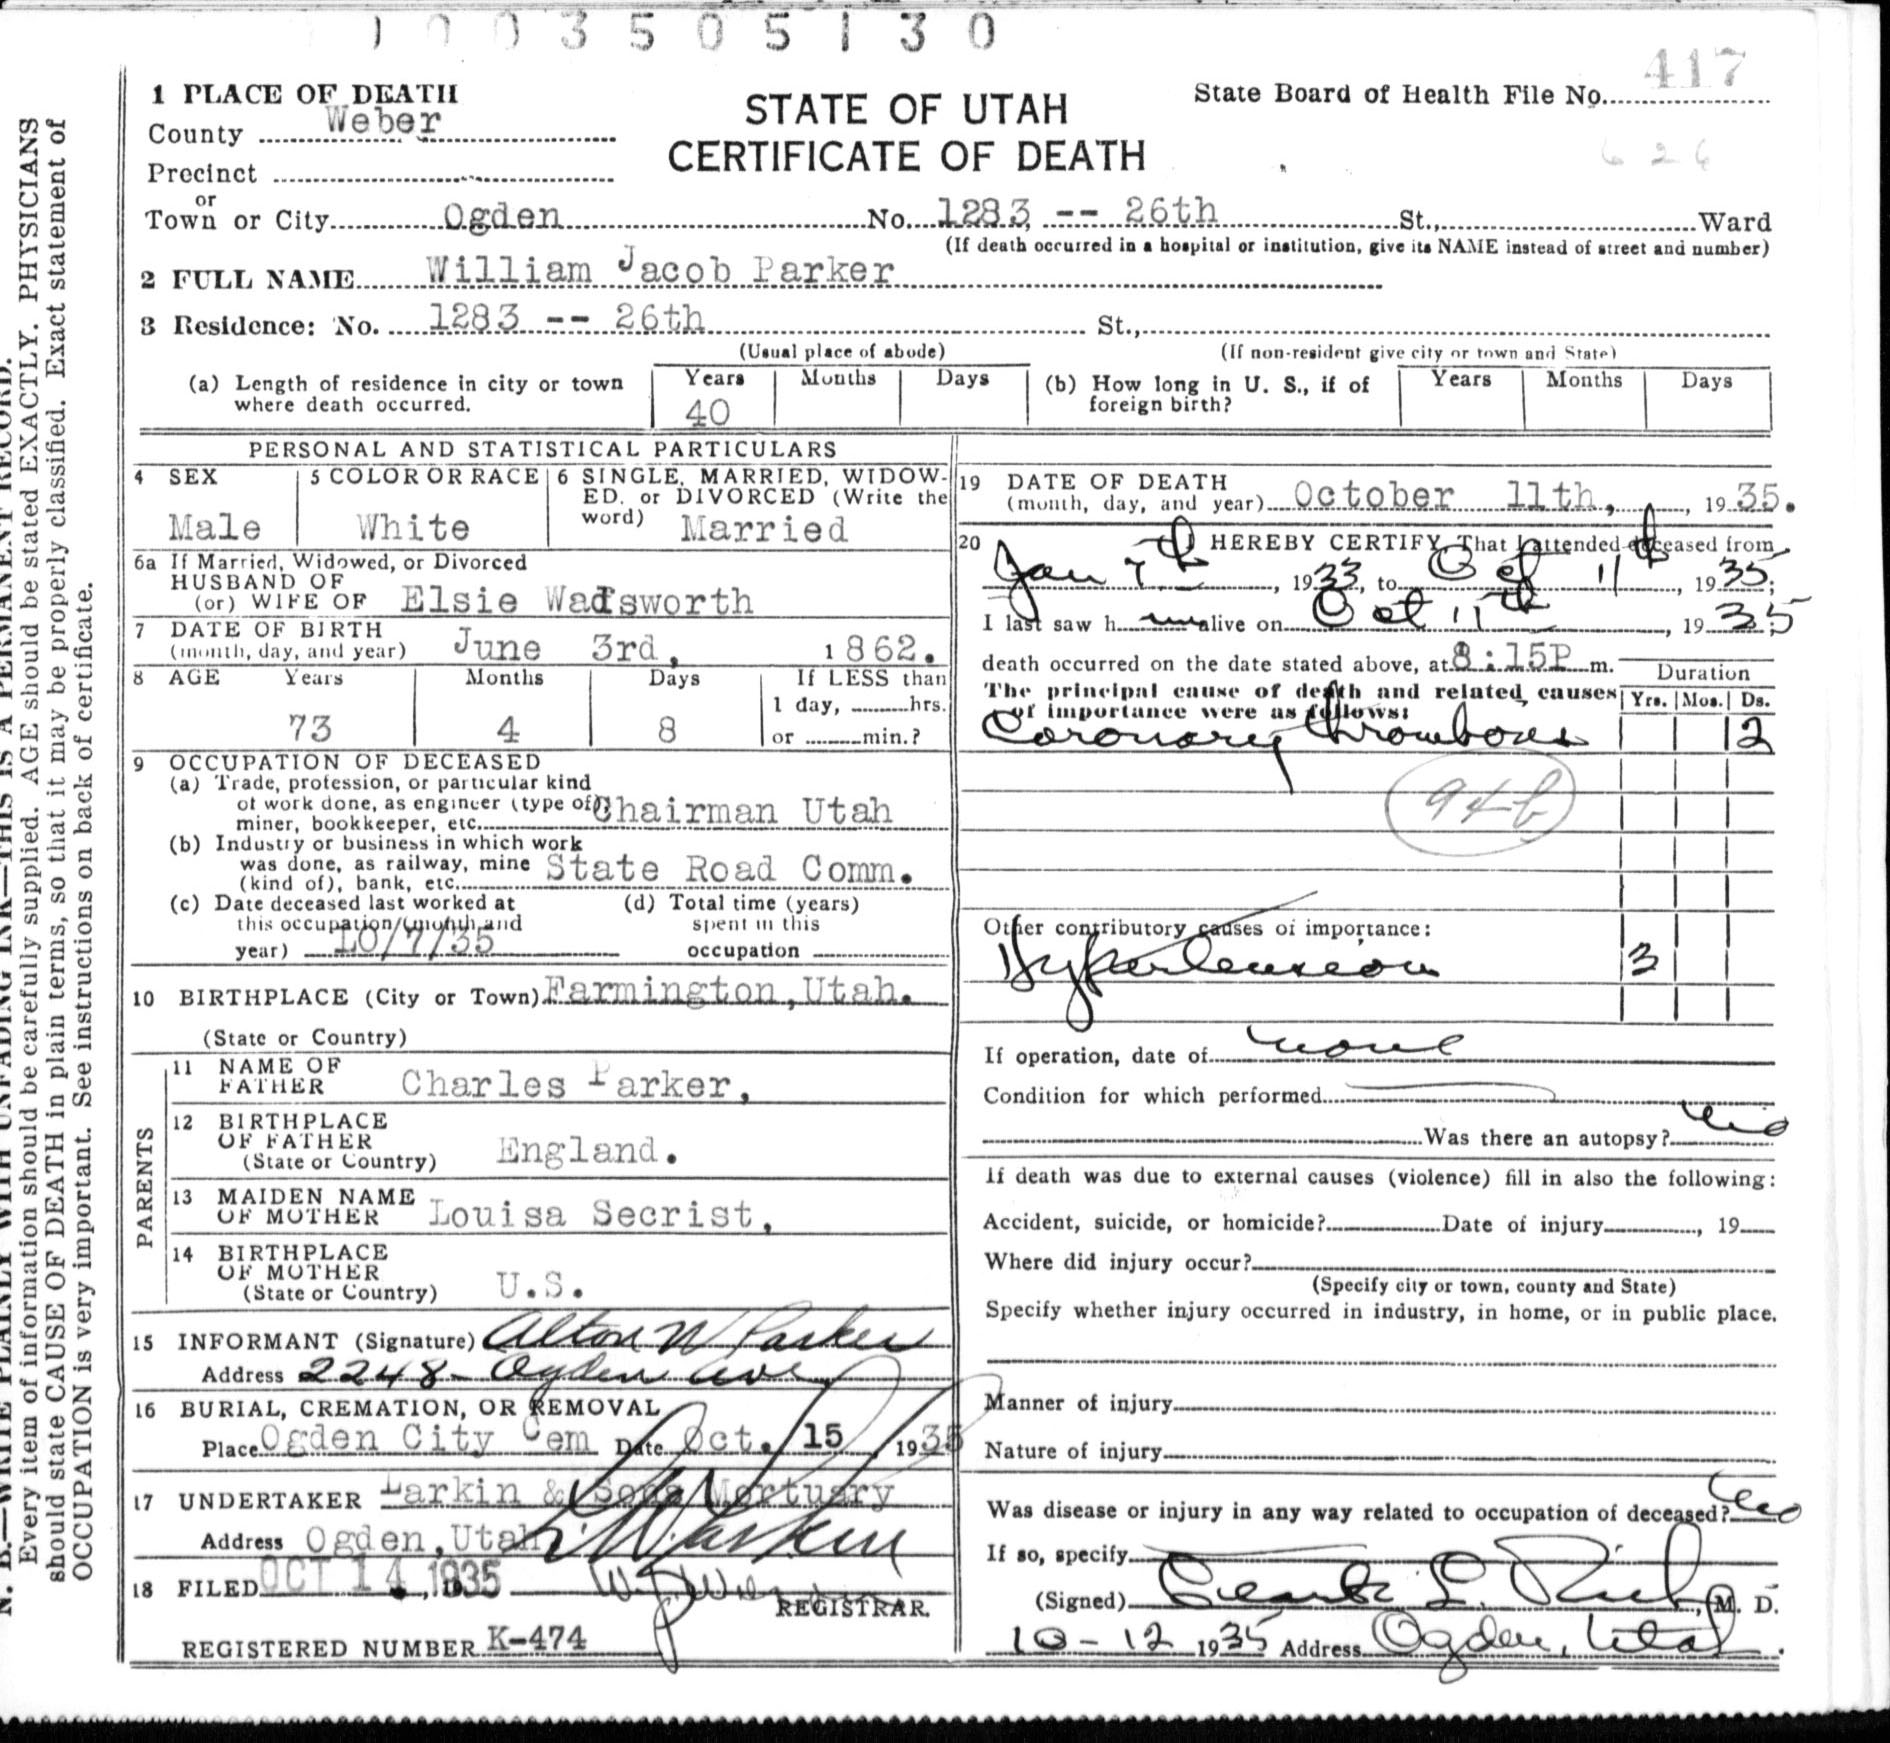 1003505130
417
1 PLACE OF DEATH
STATE OF UTAH
State Board of Health File No.
County Weber
CERTIFICATE OF DEATH
626
Precinct
or
Town or City Ogden No. 1283 -- 26th St., Ward
(If death occurred in a hospital or institution, give its NAME instead of street and number)
2 FULL NAME William Jacob Parker
3 Residence: No. 1283 -- 26th St.,
(Usual place of abode) (If non-resident give city or town and State)
(a) Length of residence in city or town where death occurred. Years 40 Months Days
(b) How long in U. S., if of foreign birth? Years Months Days
PERSONAL AND STATISTICAL PARTICULARS
4 SEX
Male
5 COLOR OR RACE
White
6 SINGLE, MARRIED, WIDOW-
ED, or DIVORCED (Write the
word) Married
6a If Married, Widowed, or Divorced
HUSBAND OF
(or) WIFE OF Elsie Wadsworth
7 DATE OF BIRTH
(month, day, and year) June 3rd, 1862.
8 AGE Years Months Days If LESS than
1 day, hrs.
73 4 8 or min.?
9 OCCUPATION OF DECEASED
(a) Trade, profession, or particular kind
of work done, as engineer (type of), Chairman Utah
miner, bookkeeper, etc.
(b) Industry or business in which work
was done, as railway, mine State Road Comm.
(kind of), bank, etc.
(c) Date deceased last worked at
this occupation (month and
year) 10/7/35
(d) Total time (years)
spent in this
occupation
10 BIRTHPLACE (City or Town) Farmington, Utah.
(State or Country)
PARENTS
11 NAME OF
FATHER Charles Parker,
12 BIRTHPLACE
OF FATHER
(State or Country) England.
13 MAIDEN NAME
OF MOTHER Louisa Secrist,
14 BIRTHPLACE
OF MOTHER
(State or Country) U.S.
15 INFORMANT (Signature) Alton W Parker
Address 2248- Ogden Ave
16 BURIAL, CREMATION, OR REMOVAL
Place Ogden City Cem Date Oct. 15, 1935
17 UNDERTAKER Larkin & Sons Mortuary
Address Ogden, Utah
18 FILED OCT 14, 1935
REGISTRAR.
REGISTERED NUMBER K-474
19 DATE OF DEATH
(month, day, and year) October 11th, 1935.
20 I HEREBY CERTIFY, That I attended deceased from
Jan 7th, 1933, to Oct 11th, 1935;
I last saw h im alive on Oct 11th, 1935
death occurred on the date stated above, at 8:15P m.
Duration
The principal cause of death and related causes
of importance were as follows: Yrs. Mos. Ds.
Coronary thrombosis 2
94b
Other contributory causes of importance:
Hypertension 3
If operation, date of none
Condition for which performed
Was there an autopsy? no
If death was due to external causes (violence) fill in also the following:
Accident, suicide, or homicide? Date of injury, 19
Where did injury occur?
(Specify city or town, county and State)
Specify whether injury occurred in industry, in home, or in public place.
Manner of injury
Nature of injury
Was disease or injury in any way related to occupation of deceased? no
If so, specify
(Signed) L. Rich, M. D.
10-12 1935 Address Ogden, Utah.
N. B.—WRITE PLAINLY WITH UNFADING INK—THIS IS A PERMANENT RECORD.
Every item of information should be carefully supplied. AGE should be stated EXACTLY. PHYSICIANS
should state CAUSE OF DEATH in plain terms, so that it may be properly classified. Exact statement of
OCCUPATION is very important. See instructions on back of certificate.